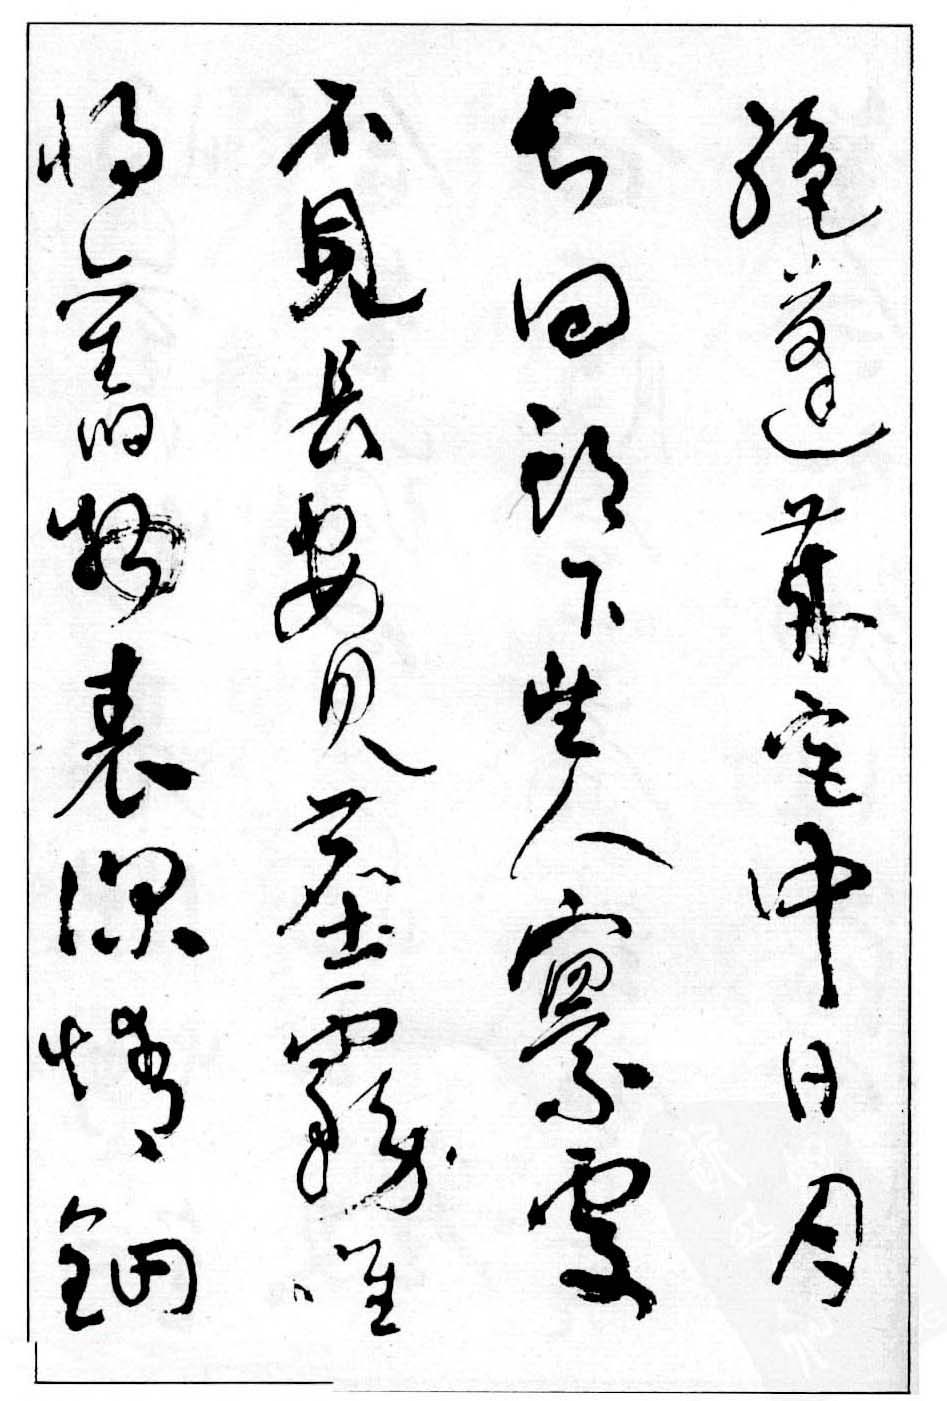 絶蓬萊宮中日月
長回頭下望人寰處
不見長安見塵霧唯
將舊物表深情鈿